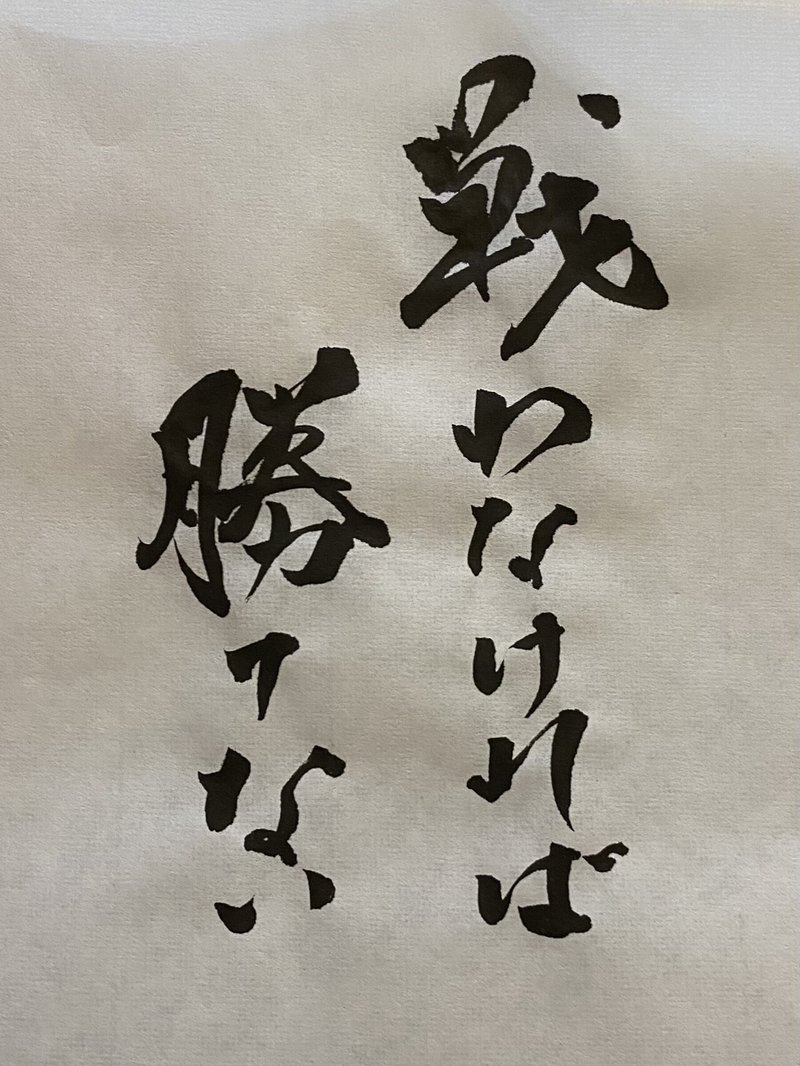 戦わなければ
勝てない